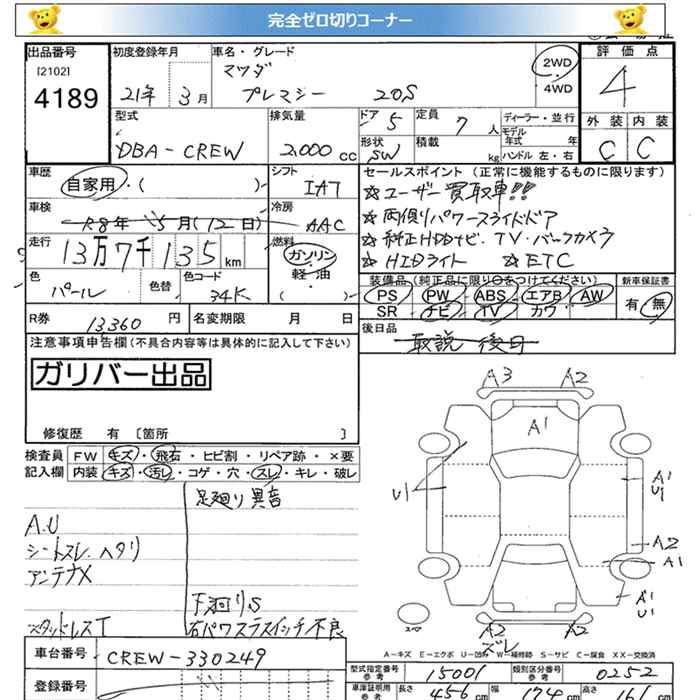 完全ゼロ切りコーナー
出品番号
[2102]
4189
初度登録年月
21年 3月
車名・グレード
マツダ
プレマシー 20S
2WD
4WD
評価点
4
外装 内装
C C
型式
DBA-CREW
排気量
2,000 cc
ドア 5
形状 SW
定員 7 人
積載 kg
ディーラー・並行
モデル年式 年
ハンドル 左・右
車歴
自家用・( )
シフト
IA7
車検
R8年 5月(12日)
冷房
AAC
走行
13万7千135km
燃料
ガソリン
軽・油
( )
色
パール
色替
色コード
34K
R券 13360 円
名変期限 月 日
セールスポイント (正常に機能するものに限ります)
☆ユーザー買取車!!
☆両側リパワースライドドア
☆純正HDDナビ・TV・バックカメラ
☆HIDライト ☆ETC
装備品 (純正品に限り○をつけてください)
PS PW ABS エアB AW
SR ナビ TV カワ
新車保証書
有・無
後日品
取説 後日
注意事項申告欄(不具合内容等は具体的に記入して下さい)
ガリバー出品
修復歴 有 〔箇所 〕
検査員記入欄
FW キズ・飛石・ヒビ割・リペア跡・×要
内装 キズ・汚レ・コゲ・穴・スレ・キレ・破レ
足廻り異音
A.U
シートスレ、ヘタリ
アンテナX
下廻りS
スタッドレスT
右パワステスイッチ不良
A3 A2
A1
U1
A1
U1
A2
A1
A1
U1
A2 A2
A-キズ E-エクボ U-凹み W-補修跡 S-サビ C-腐食 XX-交換済
車台番号
CREW-330249
登録番号
型式指定番号 参考
15001
類別区分番号 参考
0252
車庫証明用 参考
長さ 456 cm
幅 174 cm
高さ 161 cm